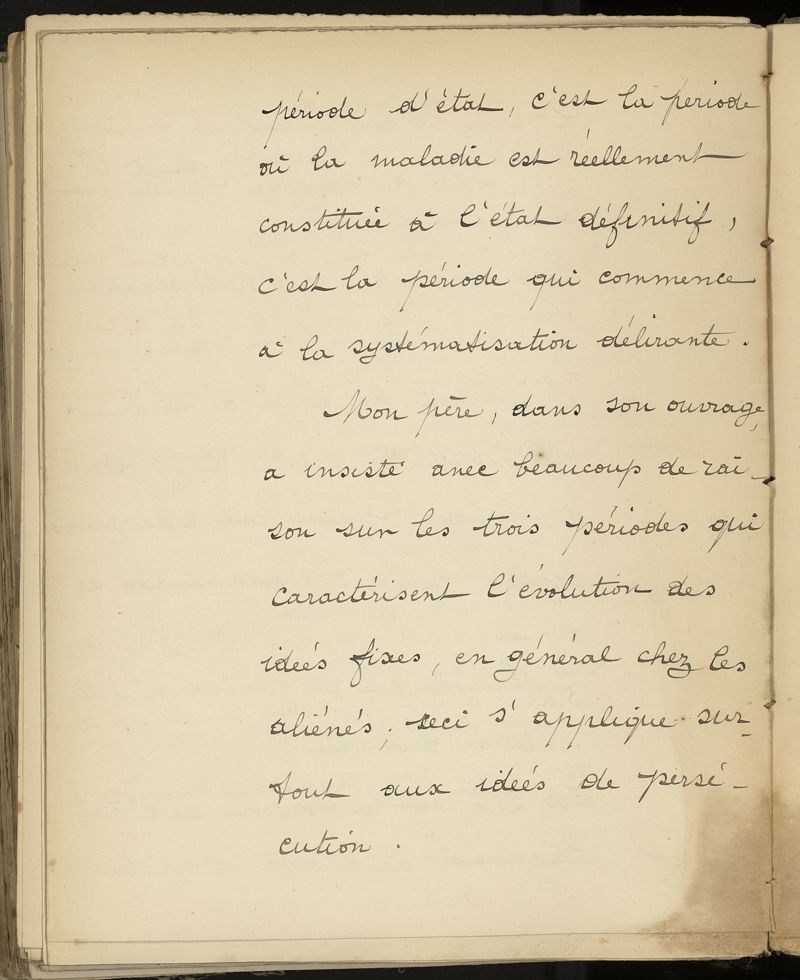 période d'état, c'est la période
où la maladie est réellement
constituée à l'état définitif,
c'est la période qui commence
à la systématisation délirante.
Mon père, dans son ouvrage,
a insisté avec beaucoup de rai-
son sur les trois périodes qui
caractérisent l'évolution des
idées fixes, en général chez les
aliénés; ceci s'applique sur-
tout aux idées de persé-
cution.